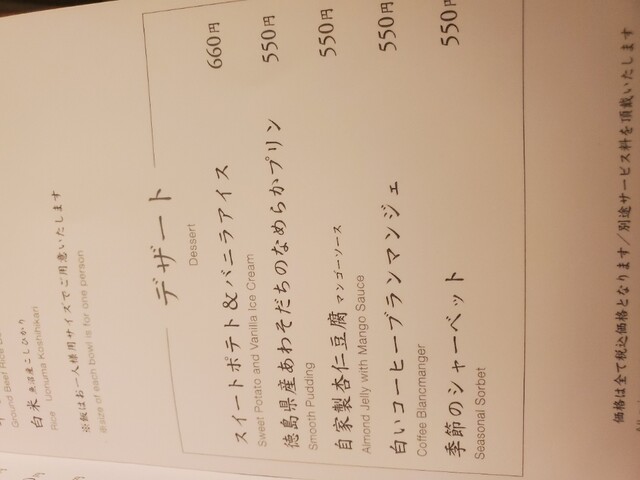 Ground Beef Rice
白米 魚沼産こしひかり
Rice Uonuma Koshihikari
※飯はお一人様用サイズでご用意いたします
※size of each bowl is for one person
デザート
Dessert
スイートポテト&バニラアイス 660円
Sweet Potato and Vanilla Ice Cream
徳島県産あわそだちのなめらかプリン 550円
Smooth Pudding
自家製杏仁豆腐 マンゴーソース 550円
Almond Jelly with Mango Sauce
白いコーヒーブランマンジェ 550円
Coffee Blancmanger
季節のシャーベット 550円
Seasonal Sorbet
価格は全て税込価格となります/別途サービス料を頂戴いたします